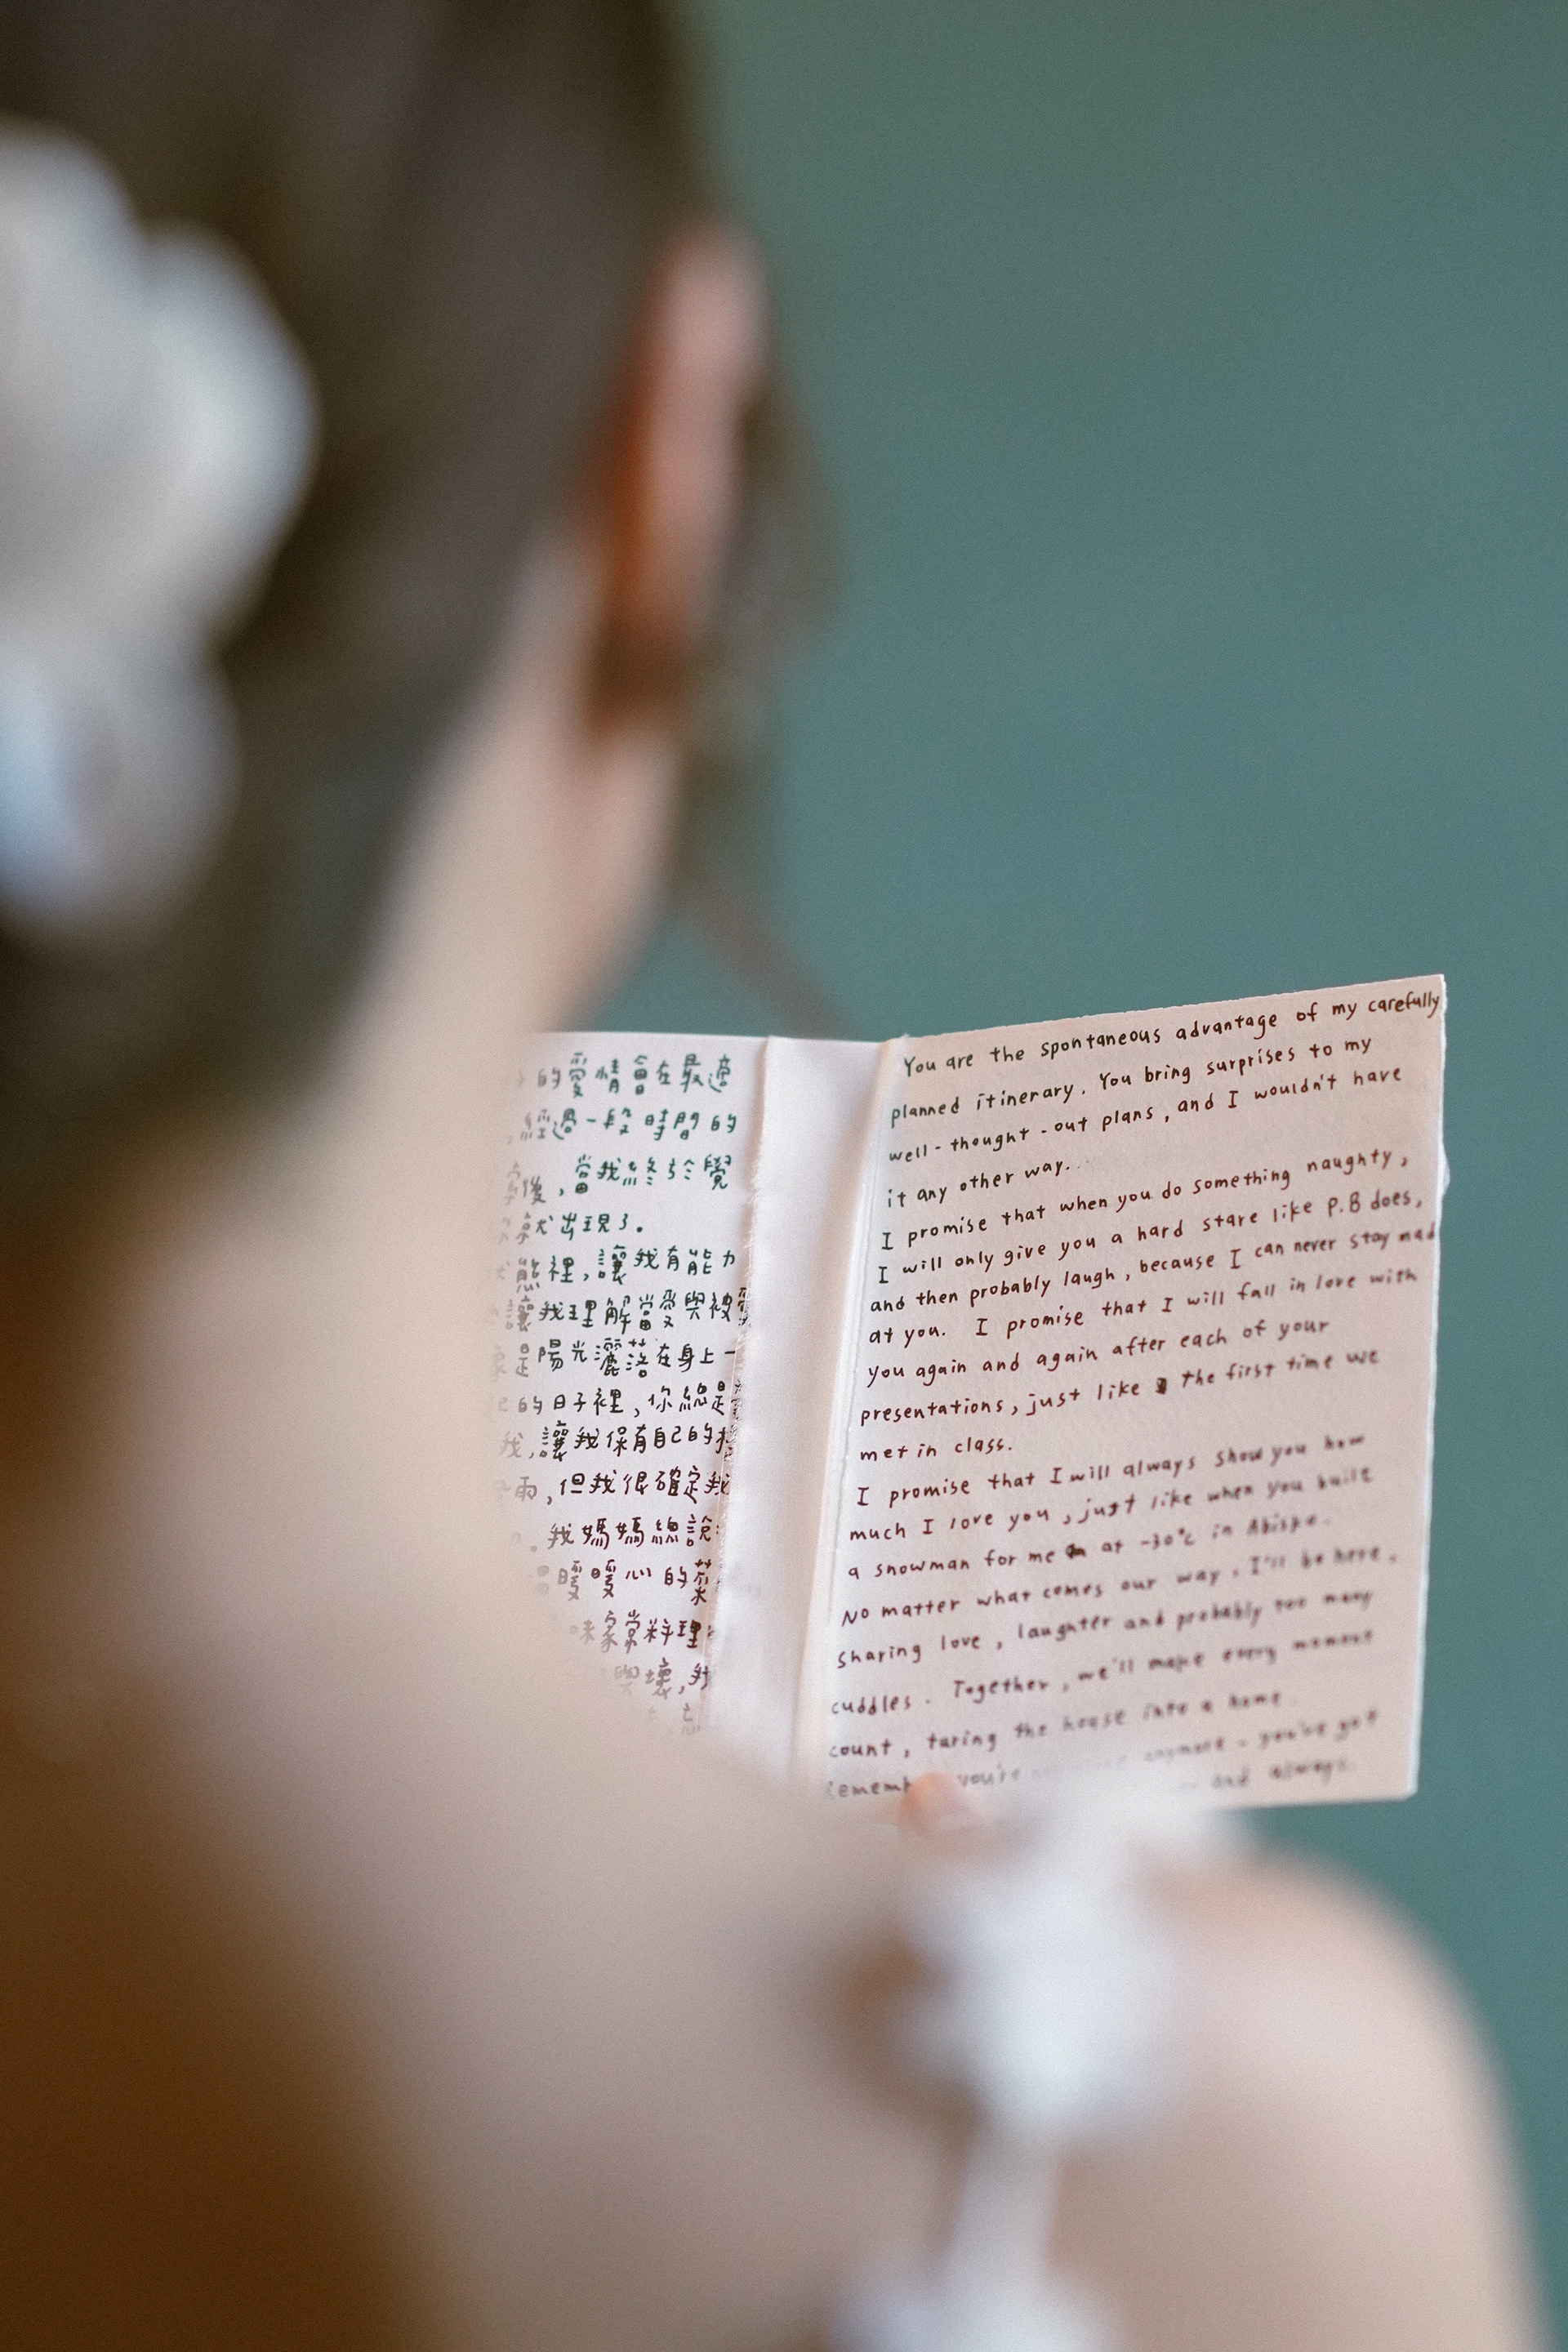 的愛情會在最適
經過一段時間的
後，當我終於覺
就出現了。
熊裡，讓我有能力
讓我理解當愛與被愛
是陽光灑落在身上一
的日子裡，你總是
我，讓我保有自己的
雨，但我很確定我
。我媽媽總說
暖暖心的菜
味家常料理
與壞，我
You are the spontaneous advantage of my carefully
planned itinerary. You bring surprises to my
well-thought-out plans, and I wouldn't have
it any other way.
I promise that when you do something naughty,
I will only give you a hard stare like P.B does,
and then probably laugh, because I can never stay mad
at you. I promise that I will fall in love with
you again and again after each of your
presentations, just like the first time we
met in class.
I promise that I will always show you how
much I love you, just like when you built
a snowman for me at -30°C in Abisko.
No matter what comes our way, I'll be here,
sharing love, laughter and probably too many
cuddles. Together, we'll make every moment
count, turing the house into a home.
you're anymore - you've got
and always.